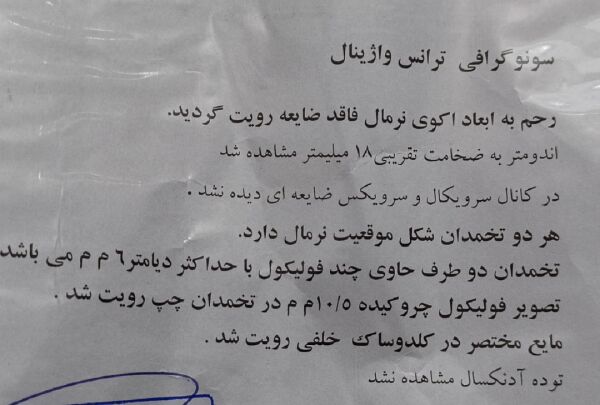 سونوگرافی ترانس واژینال
رحم به ابعاد اکوی نرمال فاقد ضایعه رویت گردید.
اندومتر به ضخامت تقریبی ۱۸ میلیمتر مشاهده شد
در کانال سرویکال و سرویکس ضایعه ای دیده نشد .
هر دو تخمدان شکل موقعیت نرمال دارد.
تخمدان دو طرف حاوی چند فولیکول با حداکثر دیامتر ٦ م م می باشد
تصویر فولیکول چروکیده ۱۰/۵ م م در تخمدان چپ رویت شد .
مایع مختصر در کلدوساک خلفی رویت شد .
توده آدنکسال مشاهده نشد